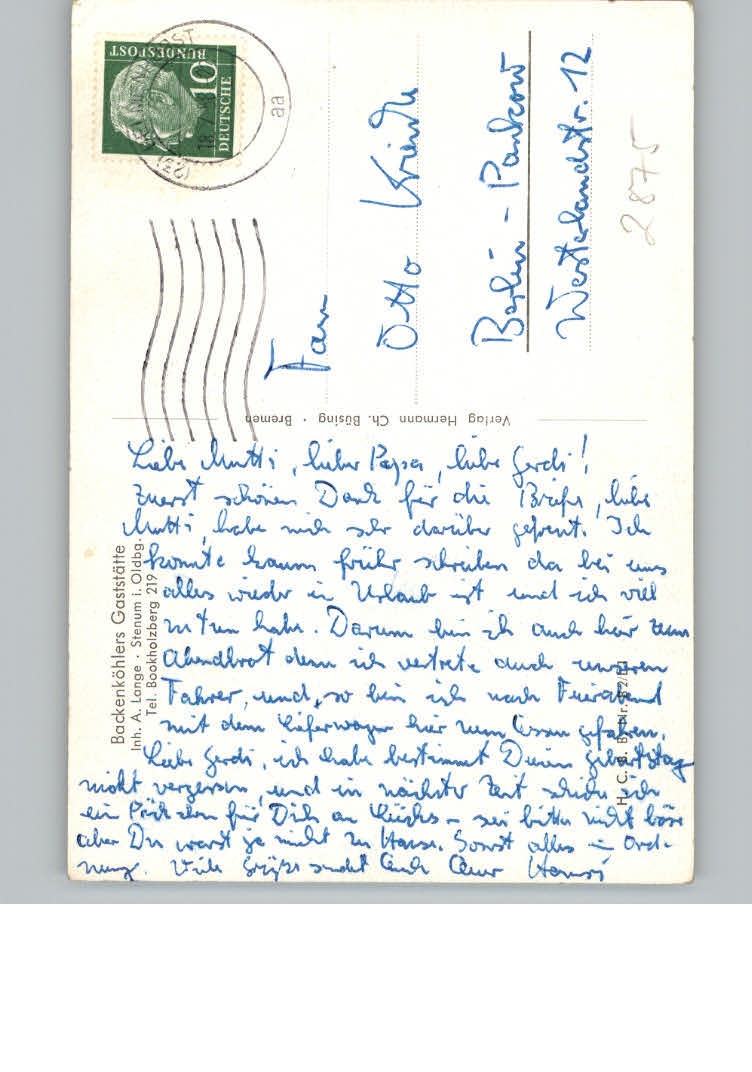 DEUTSCHE
BUNDESPOST
10
aa
Fam
Otto
Berlin - Pankow
Westerlandstr. 12
2875
Verlag Hermann Ch. Büsing · Bremen
Backenköhlers Gaststätte
Inh. A. Lange · Stenum i. Oldbg.
Tel. Bookholzberg 219
Liebe Mutti, lieber Papa, liebe Gerdi!
Zuerst schönen Dank für die Briefe, liebe
Mutti, habe mich sehr darüber gefreut. Ich
konnte kaum früher schreiben da bei uns
alles wieder in Urlaub ist und ich viel
zu tun habe. Darum bin ich auch hier zum
Abendbrot denn ich vertrete auch unseren
Fahrer, und, so bin ich nach Feierabend
mit dem Lieferwagen hier zum Essen gefahren.
Liebe Gerdi, ich habe bestimmt Deinen Geburtstag
nicht vergessen, und in nächster Zeit schicke ich
ein Päckchen für Dich an - sei bitte nicht böse
aber Du warst ja nicht zu Hause. Sonst alles in Ord-
nung. Viele Grüße sendet Euch Euer